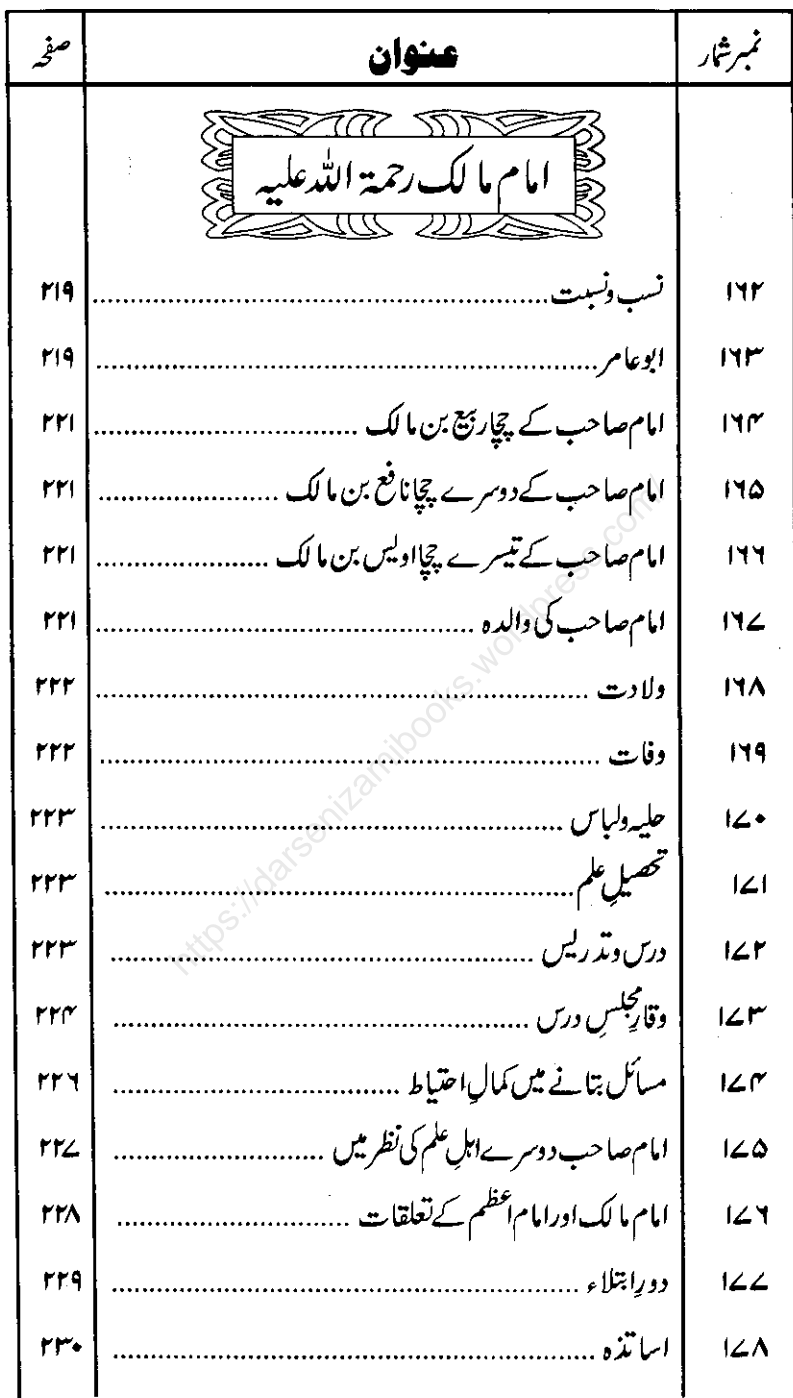 نمبر شمار عنوان صفحہ
امام مالک رحمۃ اللہ علیہ
۱۶۲ نسب و نسبت ........ ۲۱۹
۱۶۳ ابو عامر ........ ۲۱۹
۱۶۴ امام صاحب کے چچا ربیع بن مالک ........ ۲۲۱
۱۶۵ امام صاحب کے دوسرے چچا نافع بن مالک ........ ۲۲۱
۱۶۶ امام صاحب کے تیسرے چچا اویس بن مالک ........ ۲۲۱
۱۶۷ امام صاحب کی والدہ ........ ۲۲۱
۱۶۸ ولادت ........ ۲۲۲
۱۶۹ وفات ........ ۲۲۲
۱۷۰ حلیہ ولباس ........ ۲۲۳
۱۷۱ تحصیلِ علم ........ ۲۲۳
۱۷۲ درس وتدریس ........ ۲۲۳
۱۷۳ وقارِ مجلسِ درس ........ ۲۲۴
۱۷۴ مسائل بتانے میں کمالِ احتیاط ........ ۲۲۶
۱۷۵ امام صاحب دوسرے اہلِ علم کی نظر میں ........ ۲۲۷
۱۷۶ امام مالک اور امام اعظم کے تعلقات ........ ۲۲۸
۱۷۷ دورِ ابتلاء ........ ۲۲۹
۱۷۸ اساتذہ ........ ۲۳۰
https://darsenizamibooks.wordpress.com/